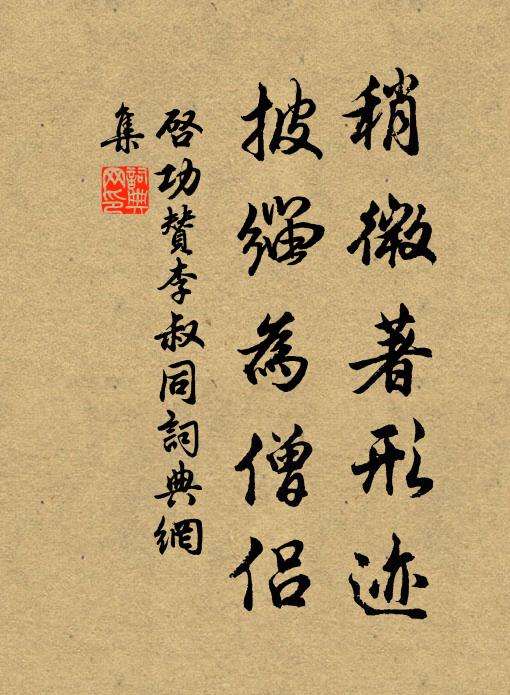 稍微著形迹
披緇為僧侣
啓功賛李叔同詞典網
集
詞典
网印